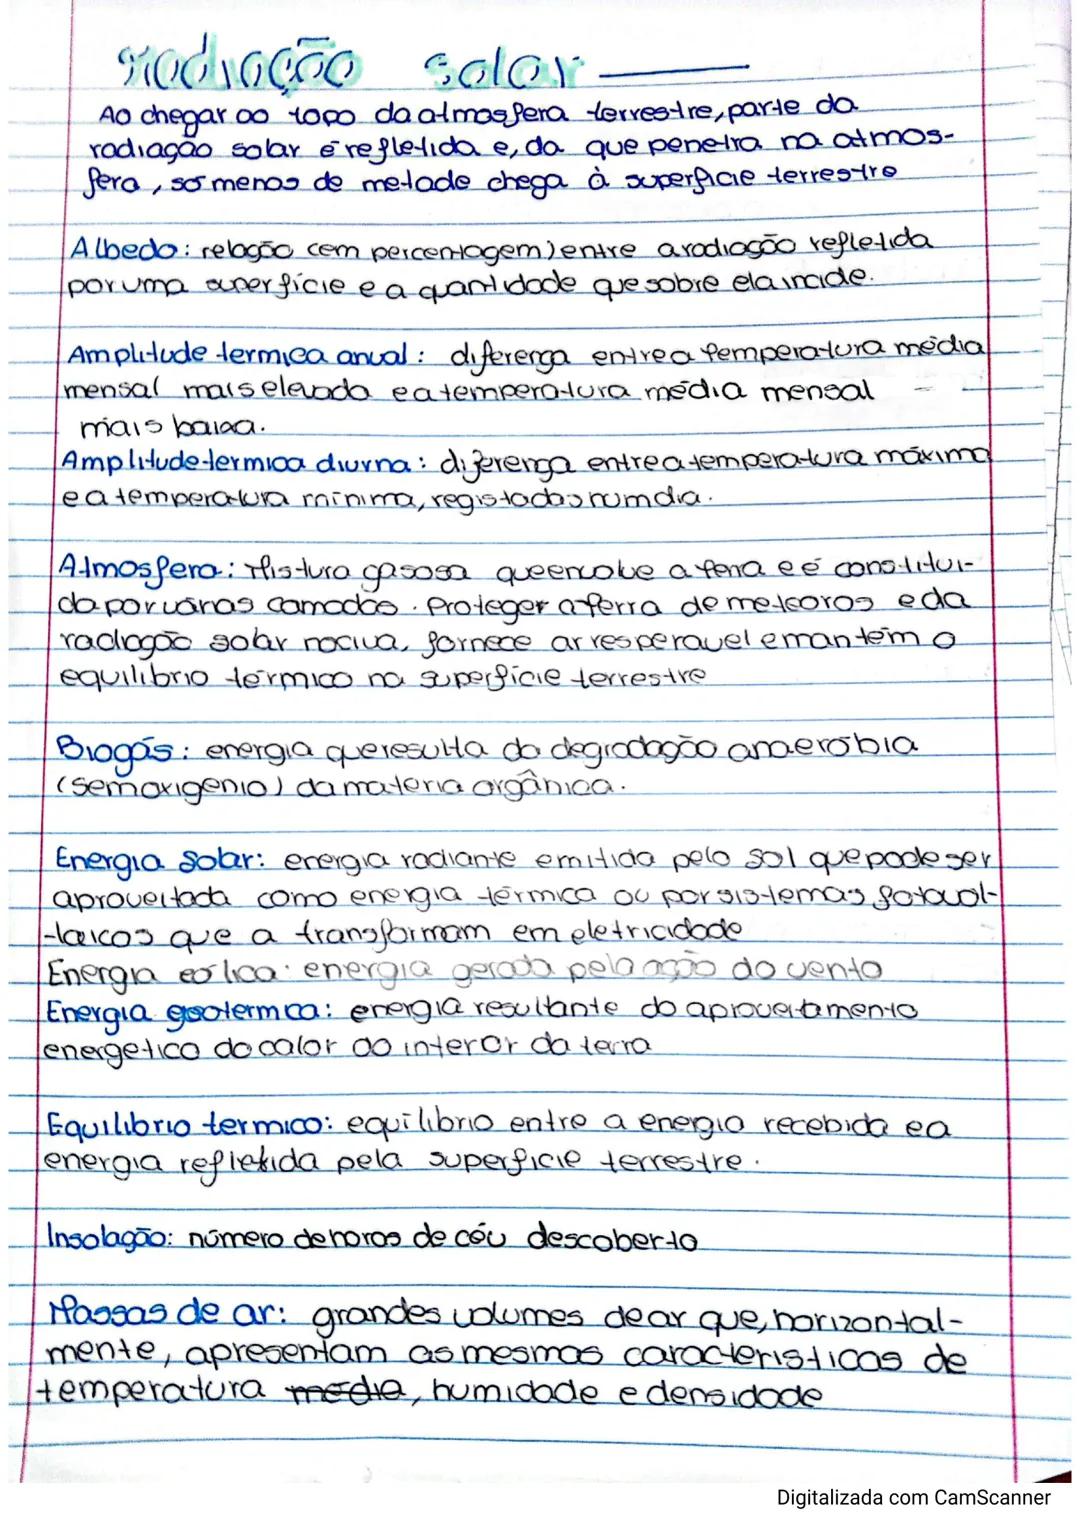 radiação solar
Ao chegar ao topo da atmosfera terrestre, parte da
radiação solar é refletida e, da que penetra na atmos-
fera, só menos de metade chega à superfície terrestre
Albedo: relação (em percentagem) entre a radiação refletida
por uma superfície e a quantidade que sobre ela incide.
Amplitude termica anual: diferença entre a temperatura média
mensal mais elevada e a temperatura média mensal
mais baixa.
Amplitude termica diurna: diferença entre a temperatura máxima
e a temperatura mínima, registadas num dia.
Atmosfera: Mistura gasosa que envolve a terra e é constituí-
da por várias camadas. Proteger a terra de meteoros e da
radiação solar nociva, fornece ar resperavel e mantém o
equilibrio térmico na superfície terrestre
Biogás: energia que resulta da degradação anaeróbia
(sem oxigenio) da materia orgânica.
Energia solar: energia radiante emitida pelo sol que pode ser
aproveitada como energia térmica ou por sistemas fotovol-
taicos que a transformam em eletricidade
Energia eólica: energia gerada pela ação do vento
Energia geotermica: energia resultante do aproveitamento
energetico do calor do interor da terra
Equilibrio termico: equílibrio entre a energia recebida e a
energia refletida pela superficie terrestre.
Insolação: número de horas de céu descoberto
Massas de ar: grandes volumes de ar que, horizontal-
mente, apresentam as mesmas caracteristicas de
temperatura média, humidade e densidade
Digitalizada com CamScanner